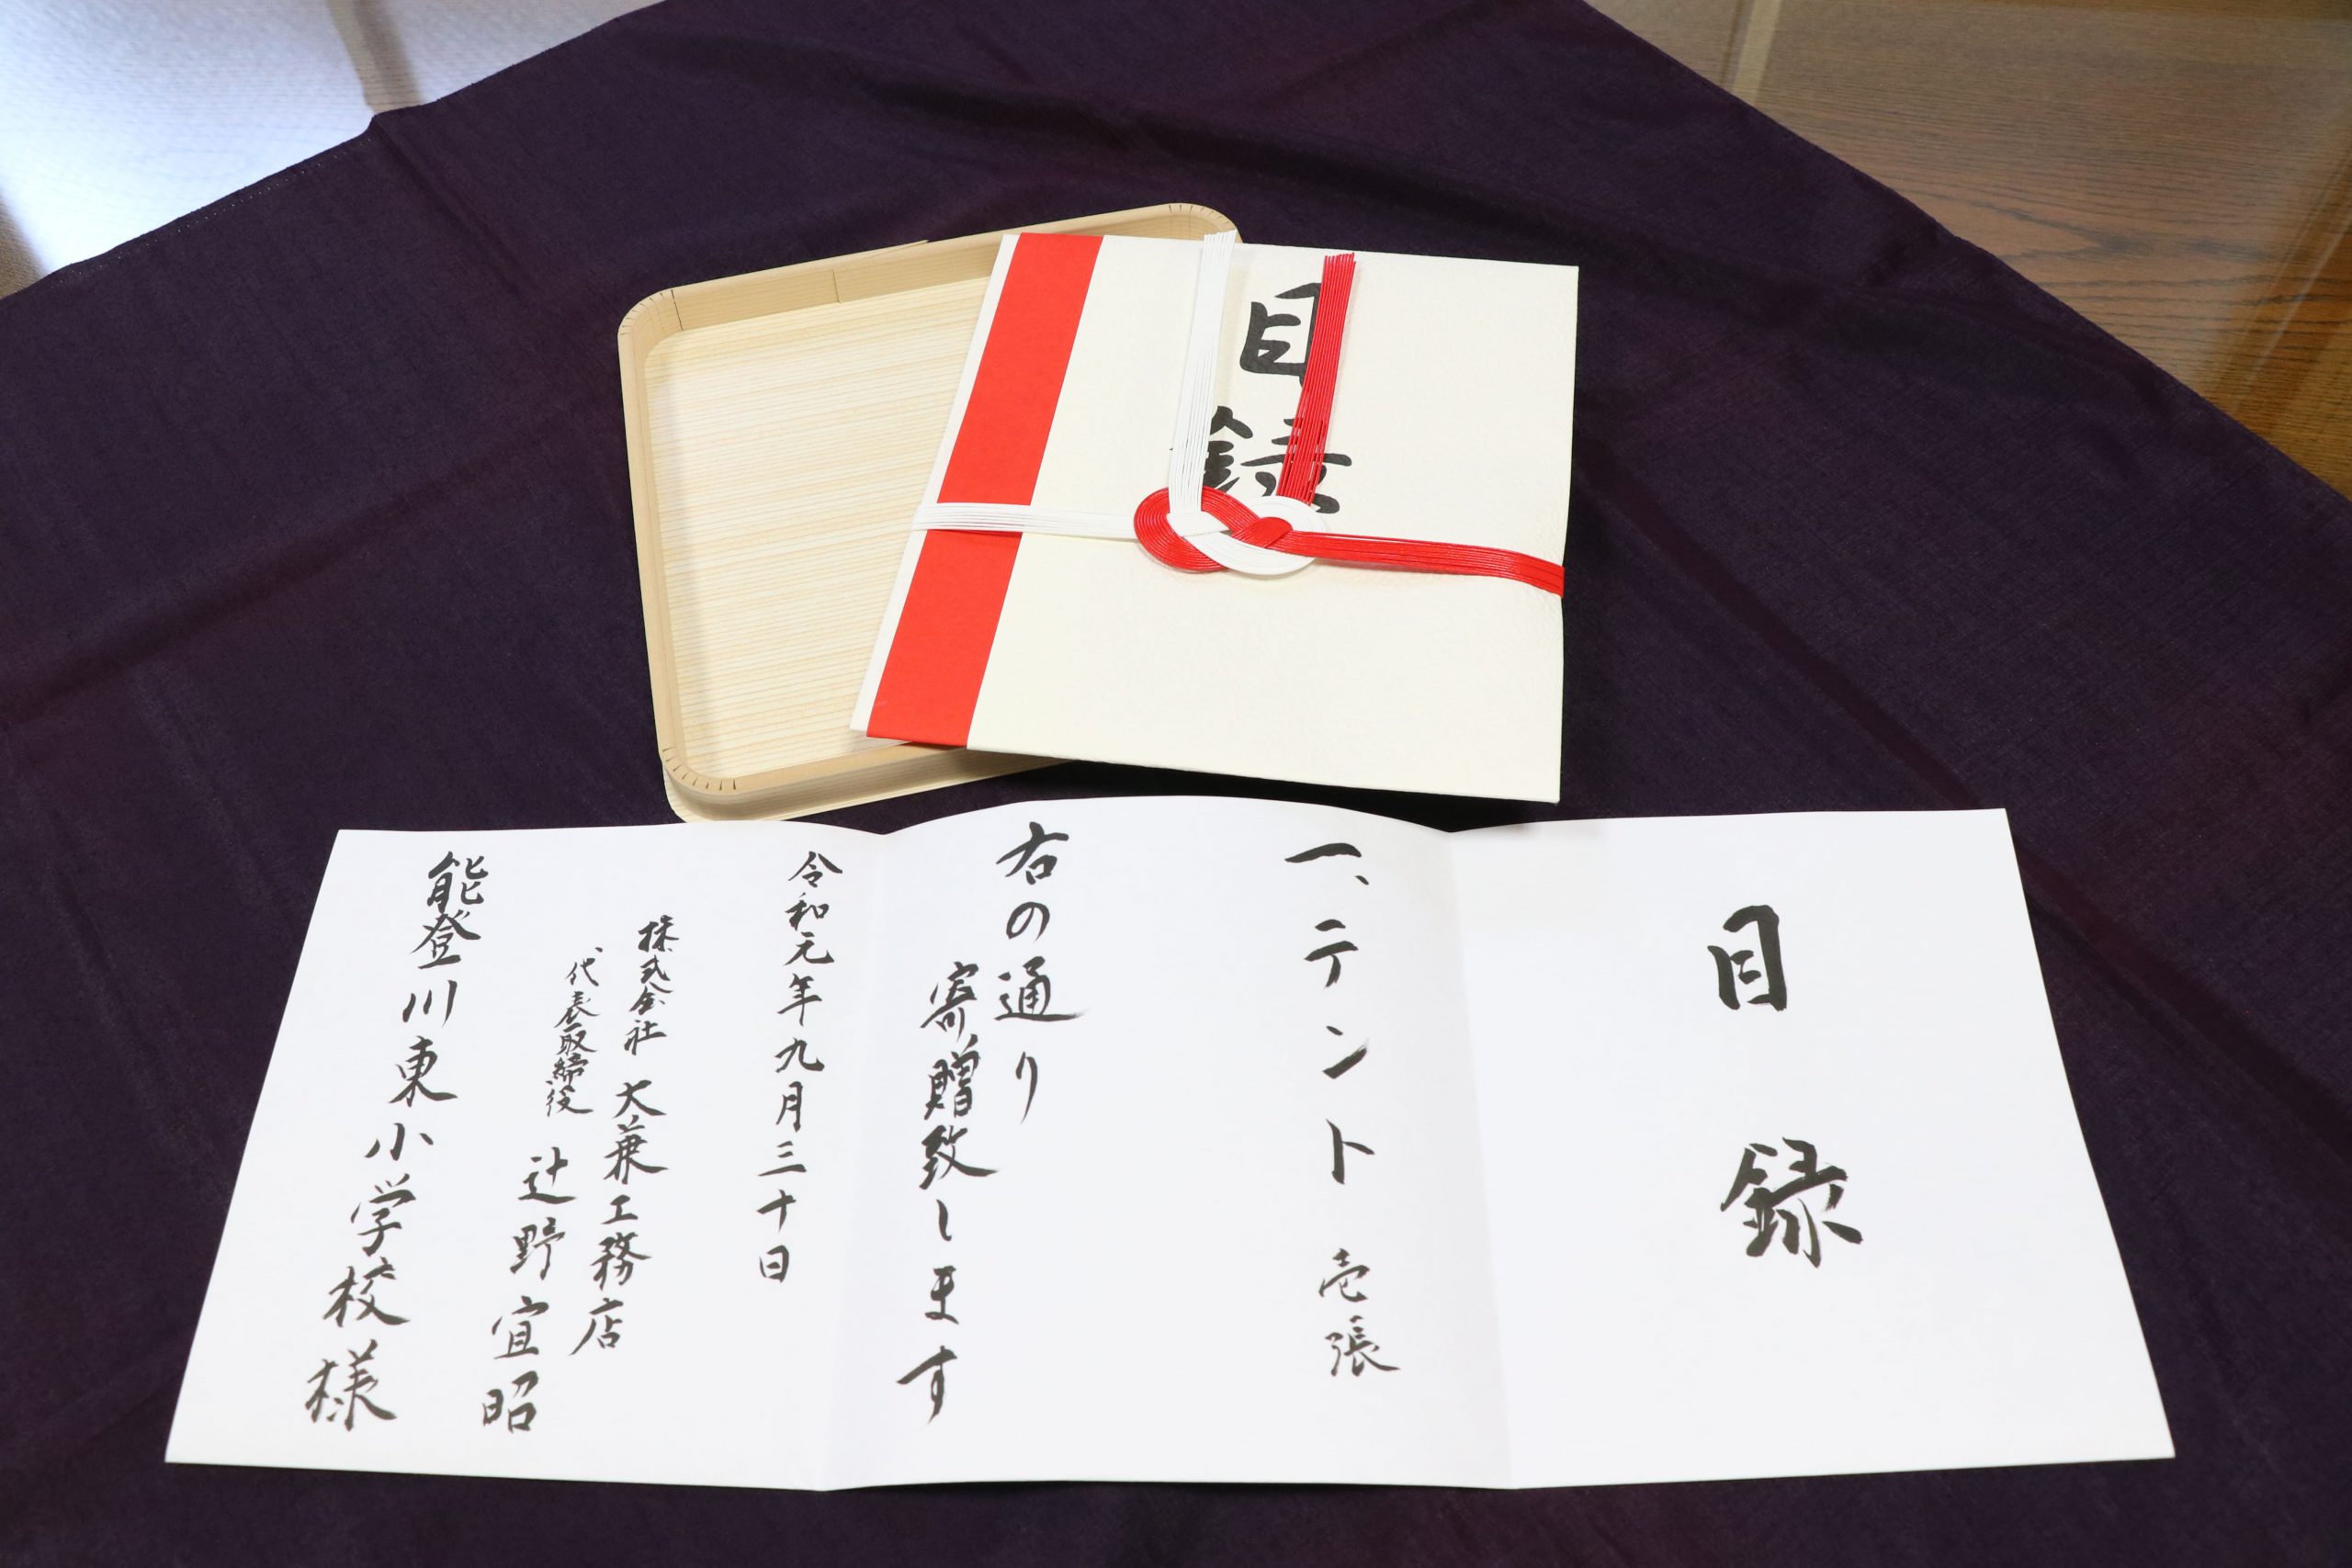 目録
目録
一、テント 壱張
右の通り
寄贈致します
令和元年九月三十日
株式会社 大兼工務店
代表取締役 辻野宜昭
能登川東小学校様